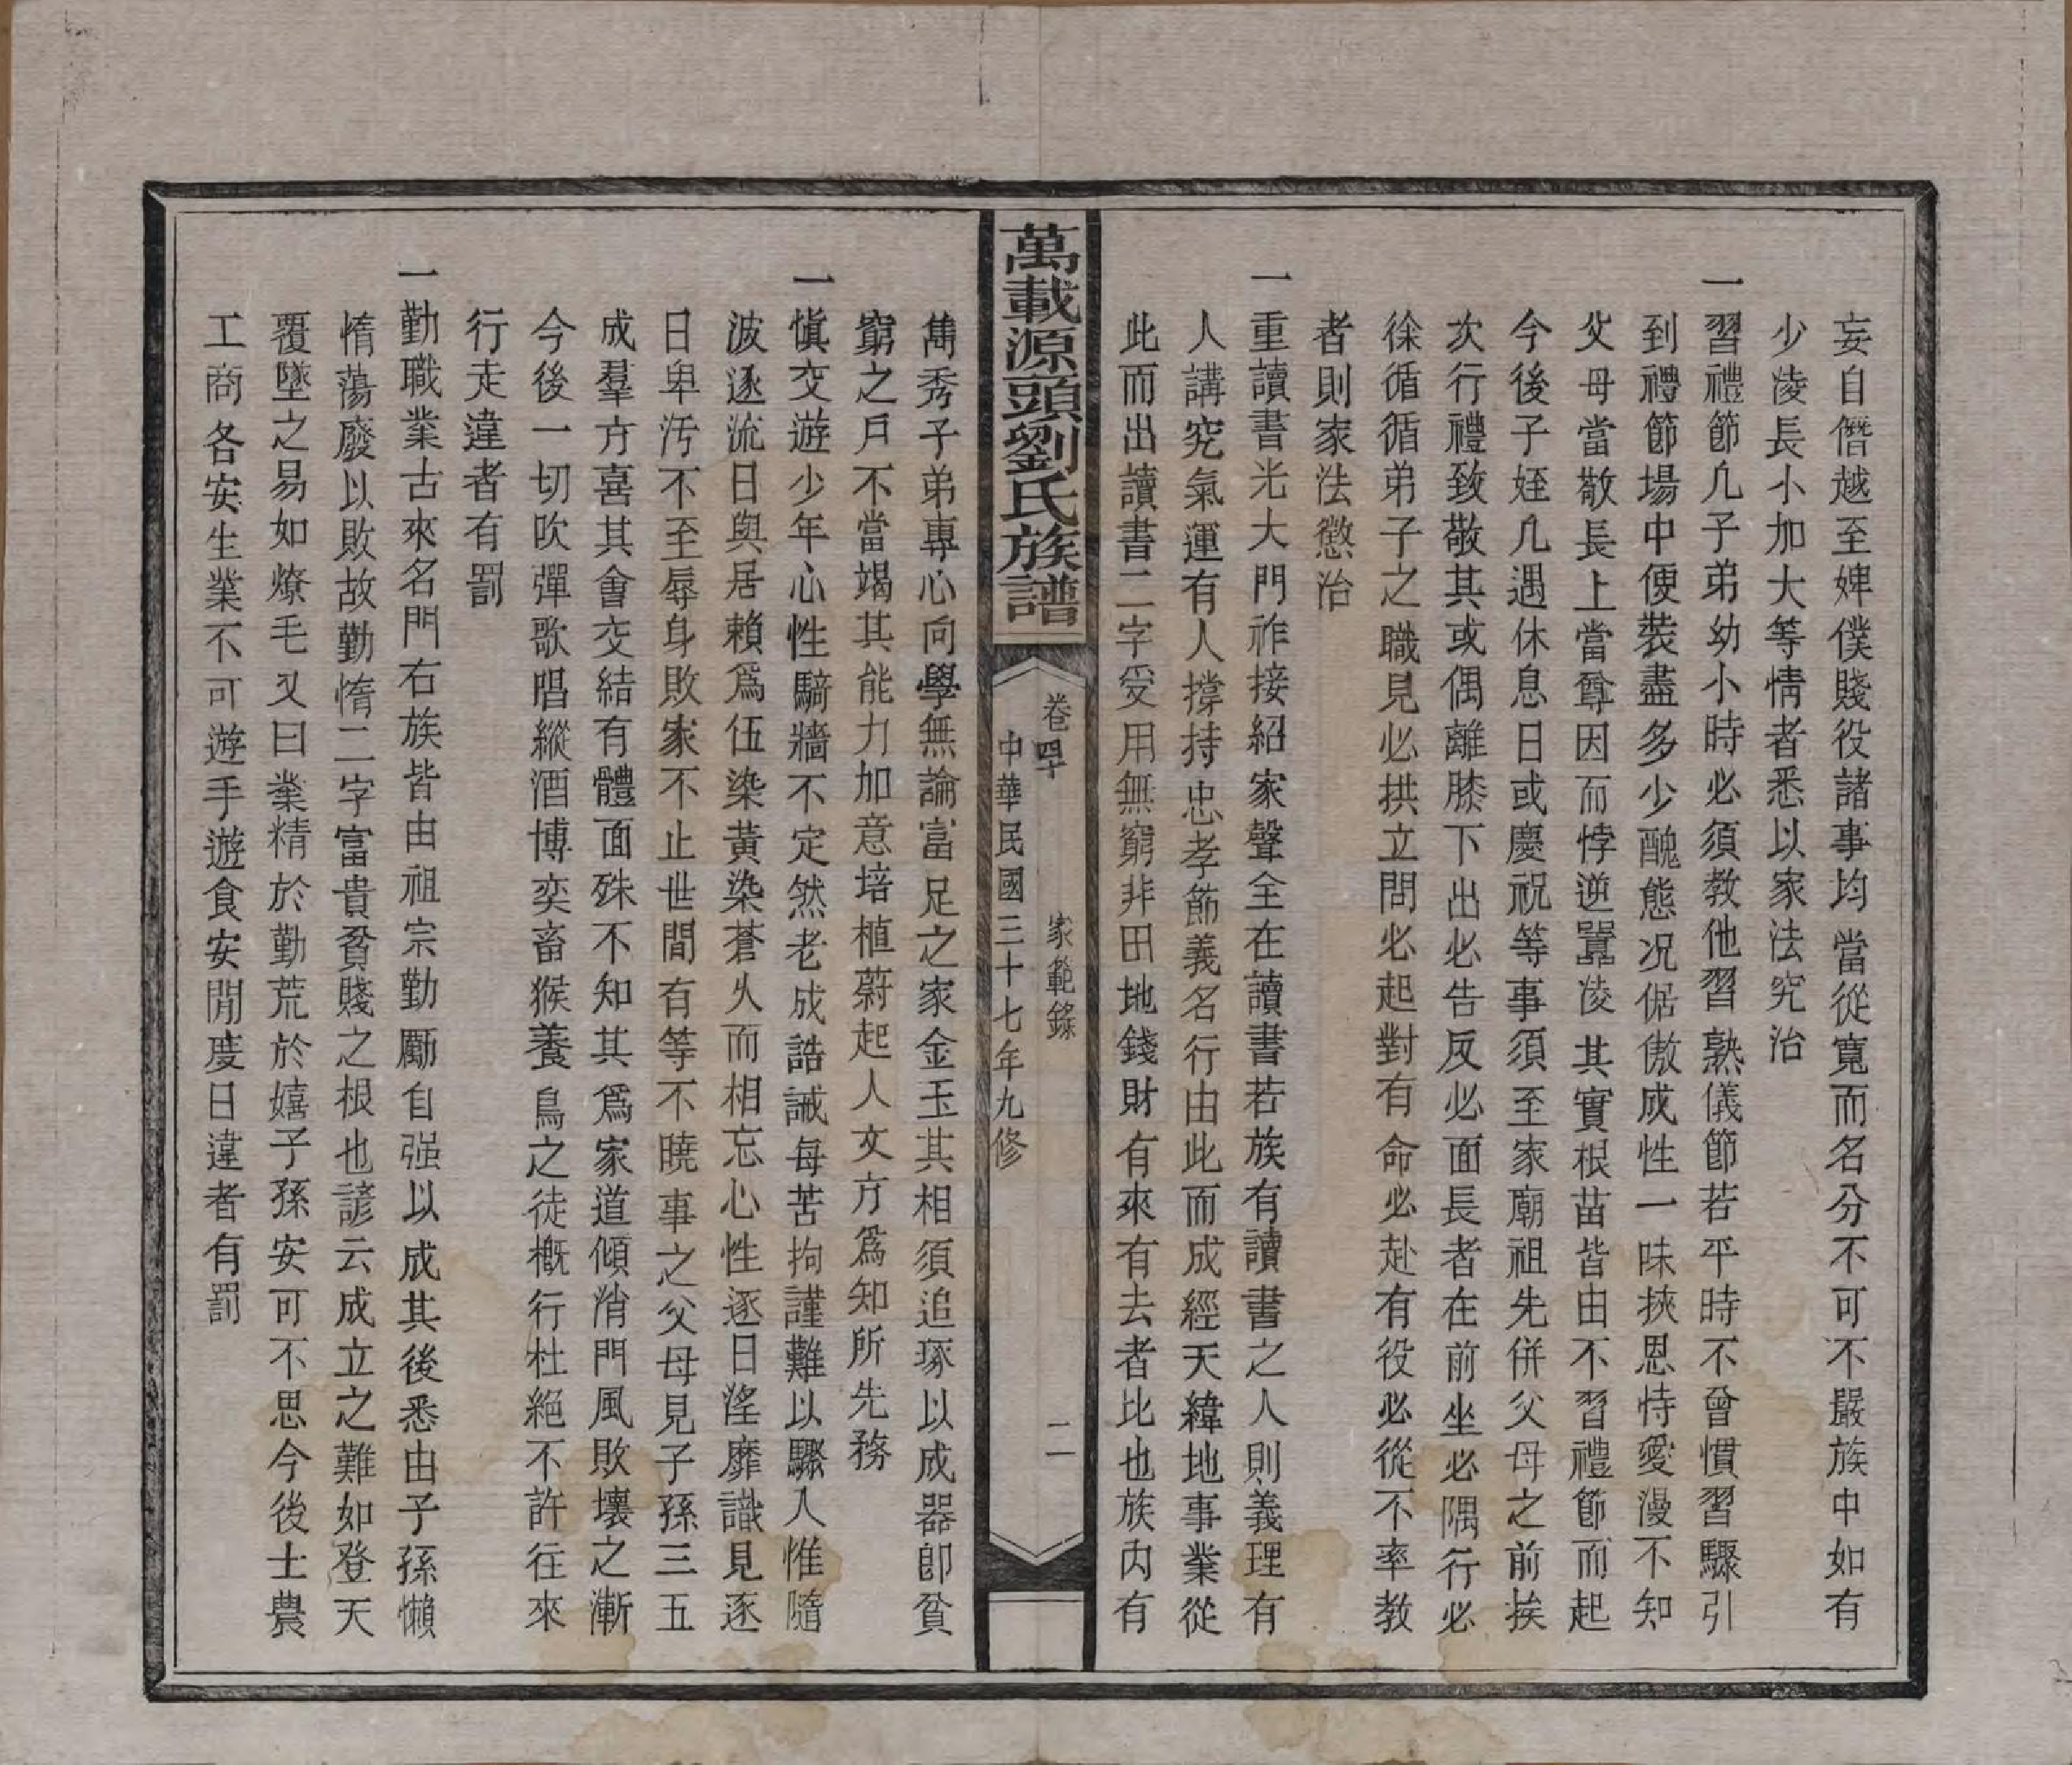 妄自僭越至婢僕賤役諸事均當從寬而名分不可不嚴族中如有
少凌長小加大等情者悉以家法究治
一習禮節凡子弟幼小時必須教他習熟儀節若平時不曾慣習驟引
到禮節場中便裝盡多少醜態况倨傲成性一味挾恩恃愛漫不知
父母當敬長上當尊因而悖逆囂凌其實根苗皆由不習禮節而起
今後子姪凡遇休息日或慶祝等事須至家廟祖先併父母之前挨
次行禮致敬其或偶離膝下出必告反必面長者在前坐必隅行必
徐循循弟子之職見必拱立問必起對有命必赴有役必從不率教
者則家法懲治
一重讀書光大門祚接紹家聲全在讀書若族有讀書之人則義理有
人講究氣運有人撐持忠孝節義名行由此而成經天緯地事業從
此而出讀書二字受用無窮非田地錢財有來有去者比也族内有
萬載源頭劉氏族譜
卷四十
家範錄
二
中華民國三十七年九修
雋秀子弟專心向學無論富足之家金玉其相須追琢以成器卽貧
窮之戶不當竭其能力加意培植蔚起人文方爲知所先務
一愼交遊少年心性騎牆不定然老成誥誡每苦拘謹難以驟人惟隨
波逐流日與居賴爲伍染黃染蒼久而相忘心性逐日淫靡識見逐
日卑汚不至辱身敗家不止世間有等不曉事之父母見子孫三五
成羣方喜其會交結有體面殊不知其爲家道傾消門風敗壞之漸
今後一切吹彈歌唱縱酒博奕畜猴養鳥之徒槪行杜絕不許往來
行走違者有罰
一勤職業古來名門右族皆由祖宗勤勵自强以成其後悉由子孫懶
惰蕩廢以敗故勤惰二字富貴貧賤之根也諺云成立之難如登天
覆墜之易如燎毛又曰業精於勤荒於嬉子孫安可不思今後士農
工商各安生業不可遊手遊食安閒度日違者有罰